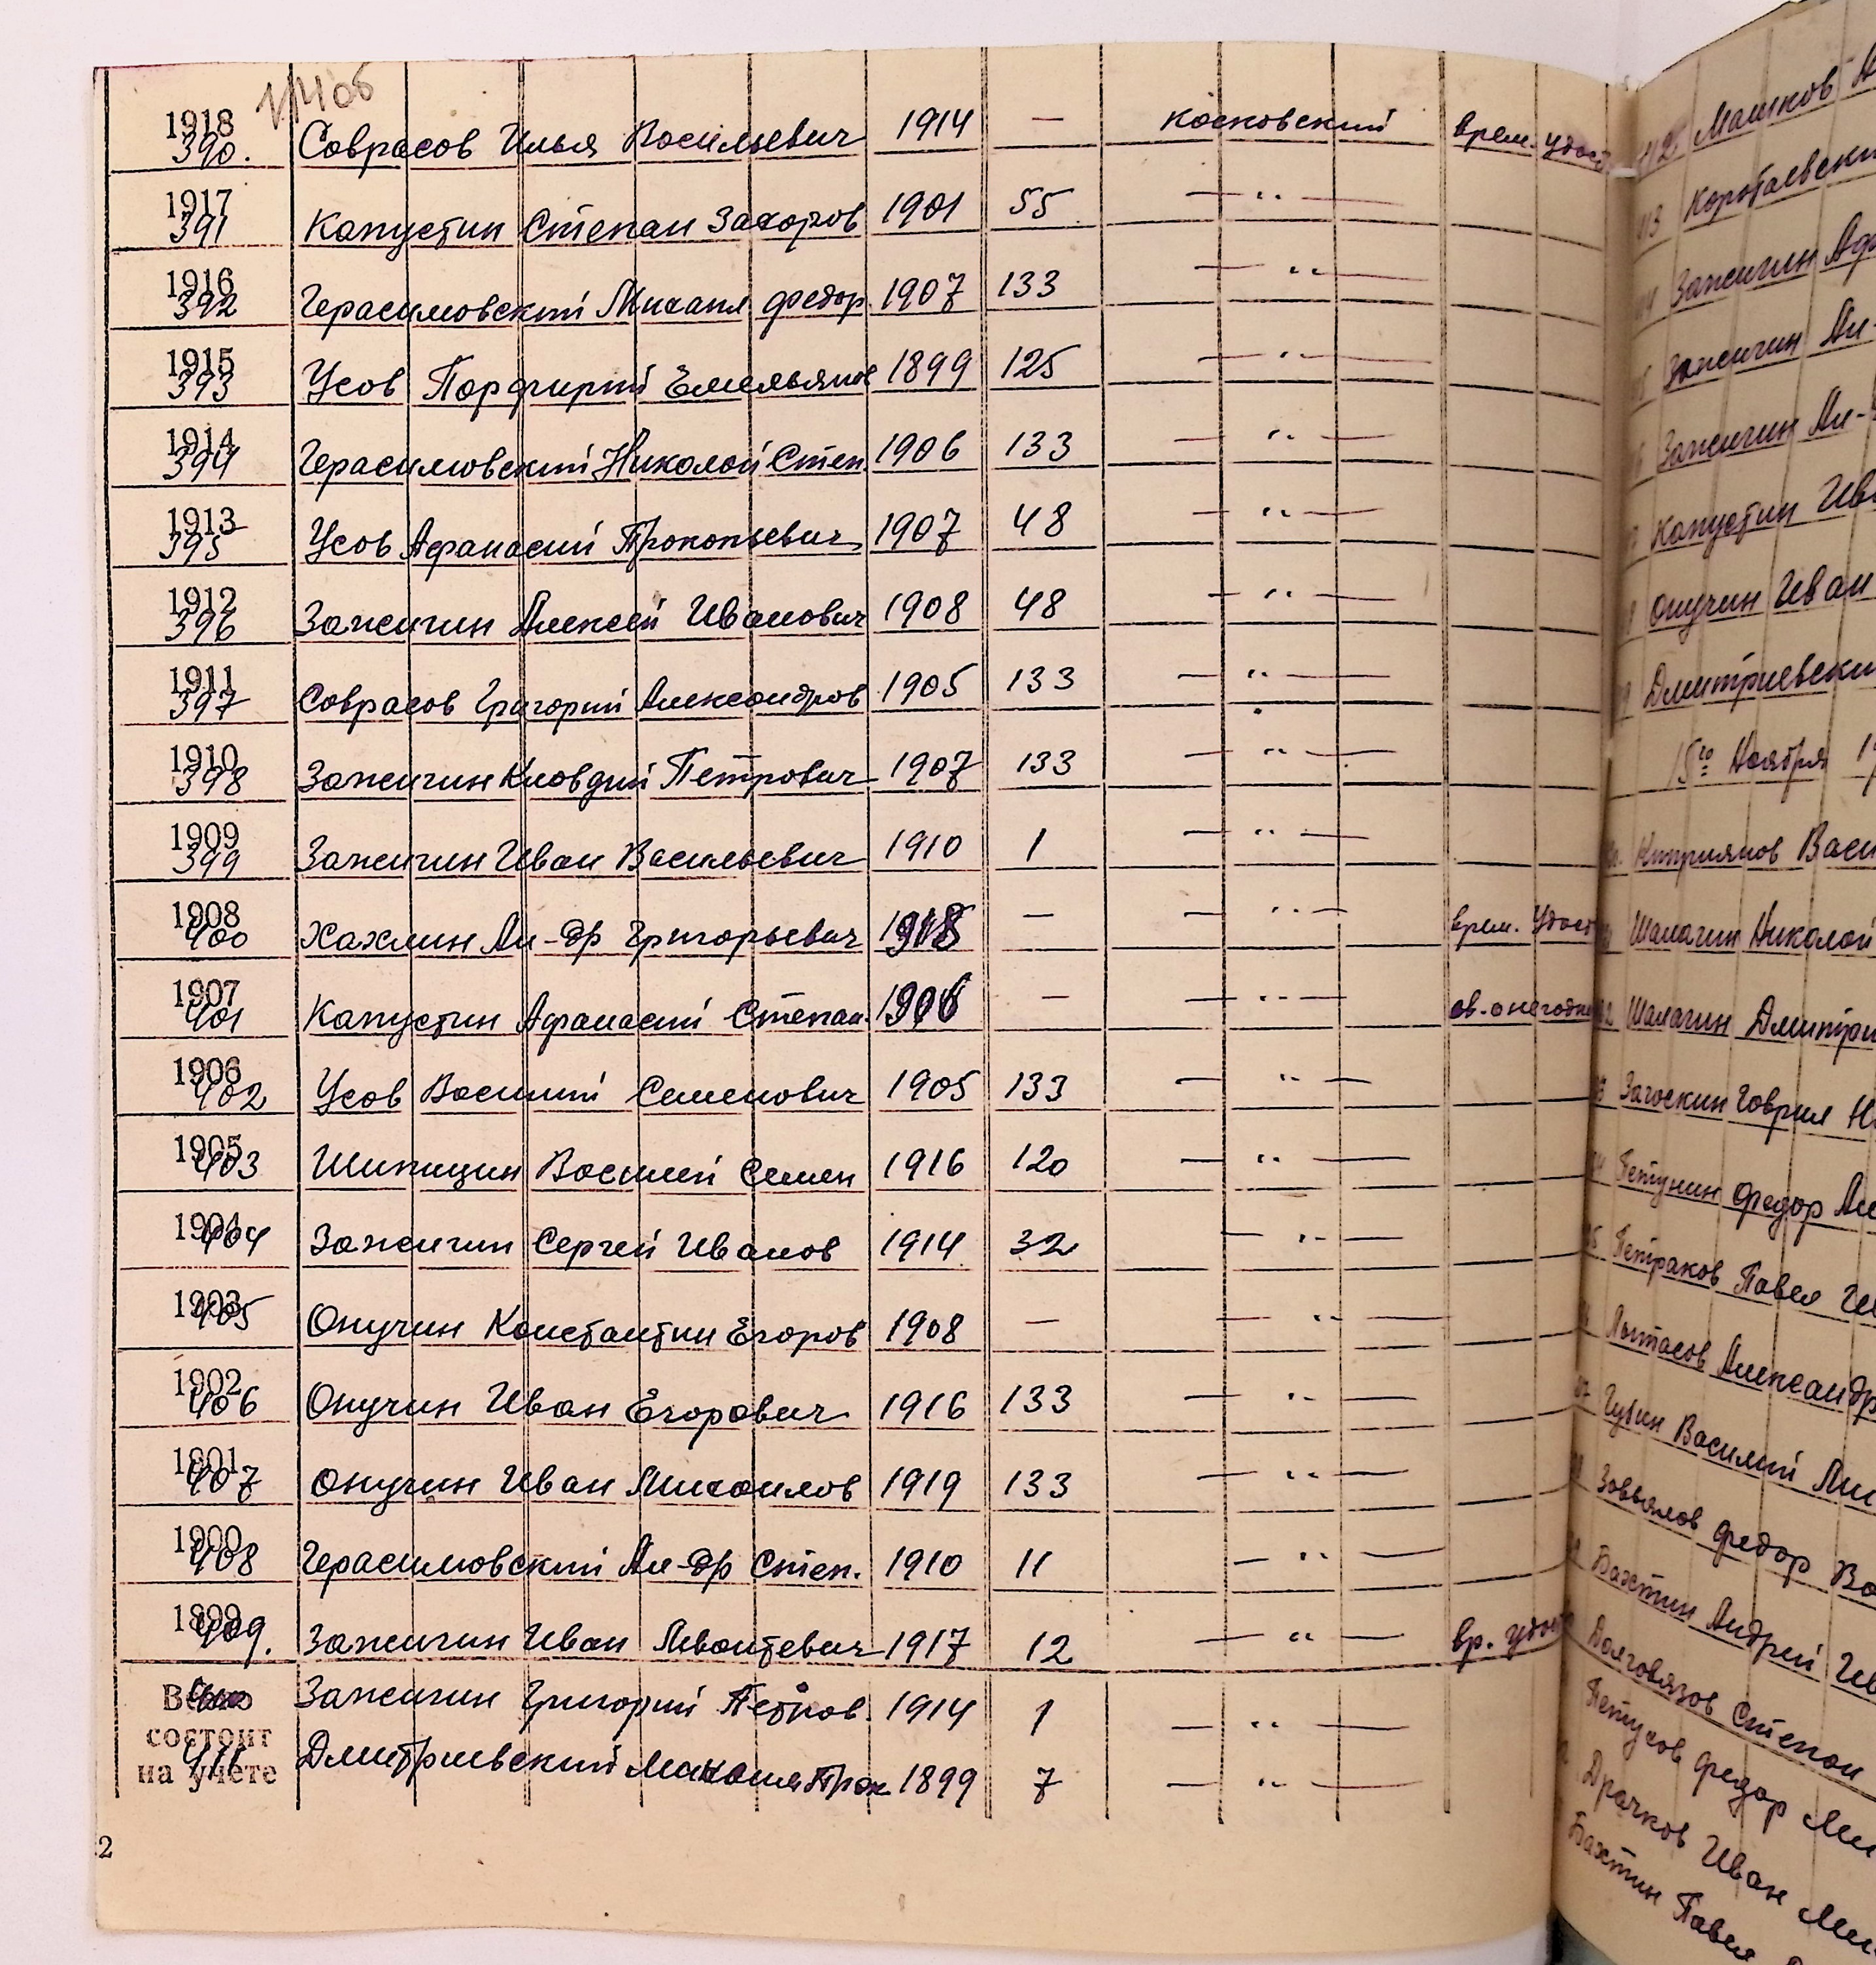 1918
390. Соврасов Илья Васильевич 1914 — Косковский врем. удост
1917
391 Капустин Степан Захаров 1901 55 — " —
1916
392 Герасимовский Михаил Федор. 1907 133 — " —
1915
393 Усов Порфирий Емельянов 1899 125 — " —
1914
394 Герасимовский Николай Степ. 1906 133 — " —
1913
395 Усов Афанасий Прокопьевич 1907 48 — " —
1912
396 Зажигин Алексей Иванович 1908 48 — " —
1911
397 Соврасов Григорий Александров 1905 133 — " —
1910
398 Зажигин Клавдий Петрович 1907 133 — " —
1909
399 Зажигин Иван Васильевич 1910 1 — " —
1908
400 Хахлин Ал-др Григорьевич 1918 — — " — врем. удост
1907
401 Капустин Афанасий Степан. — — " —
1906
402 Усов Василий Семенович 1905 133 — " —
1905
403 Шипицин Василий Семен 1916 120 — " —
1904
404 Зажигин Сергей Иванов 1914 32 — " —
1903
405 Онучин Константин Егоров 1908 — — " —
1902
406 Онучин Иван Егорович 1916 133 — " —
1901
407 Онучин Иван Михаилов 1919 133 — " —
1900
408 Герасимовский Ал-др Степ. 1910 11 — " —
1899
409. Зажигин Иван Леонтевич 1917 12 — " — вр. удост
Всего
410 Зажигин Григорий Петров. 1914 1 — " —
состоит
на учете
411 Дмитриевский Михаил Прок 1899 7 — " —
2
Машков
113 Коротаевски
Зажигин
Зажигин Ал-
Зажигин Ал-
Капустин Ива
Онучин Иван
Дмитриевски
15го Ноября
Киприянов Васи
Шалагин Николай
Шалагин Дмитри
Загоскин Гаврил
Петунин Федор Ал
Петраков Павел
Лытасов Александр
Губин Василий Ми
Завьялов Федор Ва
Бахтин Андрей Ив
Долговязов Степан
Петухов Федор Ми
Драчков Иван Ми
Бахтин Павел